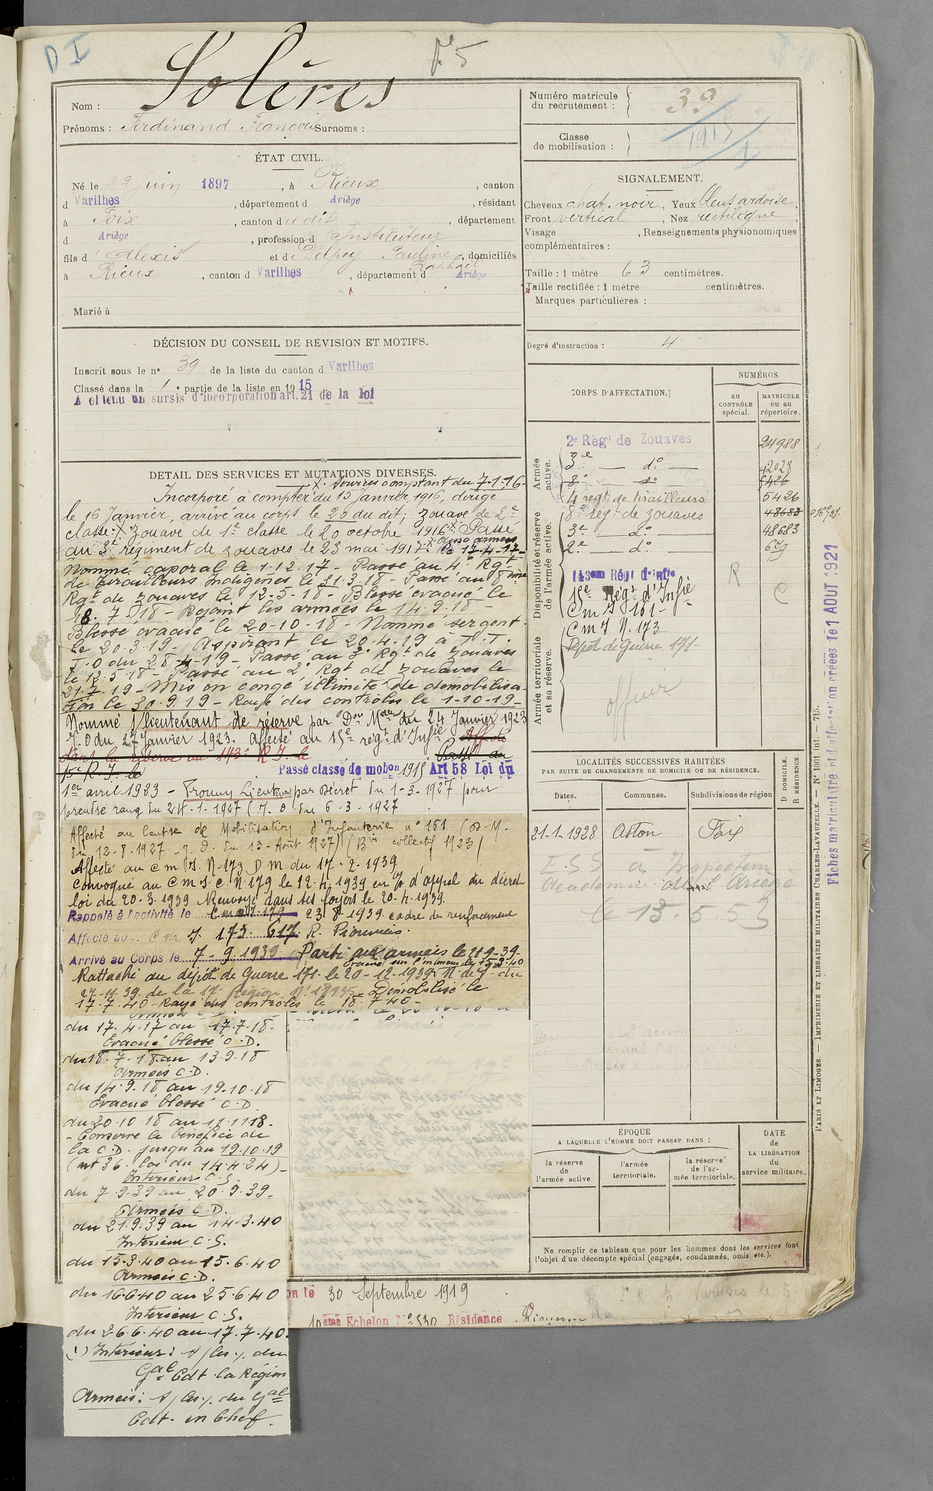 D I
Solères
Nom :
Prénoms : Ferdinand François Surnoms :
ÉTAT CIVIL.
Né le 22 juin 1897, à Rieux, canton
d Varilhes, département d Ariège, résidant
à Foix, canton du dit, département
d Ariège, profession d Instituteur
fils d Alexis et de Delpey Pauline, domiciliés
Raphaël
à Rieux, canton d Varilhes, département d Ariège
Marié à
DÉCISION DU CONSEIL DE REVISION ET MOTIFS.
Inscrit sous le n° 39 de la liste du canton d Varilhes
Classé dans la 1e partie de la liste en 1915
A obtenu un sursis d'incorporation art. 21 de la loi
DETAIL DES SERVICES ET MUTATIONS DIVERSES.
X. Services comptant du 7-1-16-
Incorporé à compter du 15 janvier 1916, dirigé
le 16 Janvier, arrivé au corps le 26 du dit; Zouave de 2e
classe. X Zouave de 1e classe le 20 octobre 1916. Passé
aux armées
au 3e régiment de zouaves le 23 mai 1917. le 17-4-17-
Nommé caporal le 1-12-17- Passé au 4e Rgt
de Tirailleurs Indigènes le 21-3-18- Passé au 8ème
Rgt de Zouaves le 12-5-18- Blessé évacué le
18-7-18- Rejoint les armées le 14-9-18-
Blessé évacué le 20-10-18- Nommé sergent
le 20-3-19. Aspirant le 20-4-19 à T.T.
J.O du 28-4-19- Passé au 3e Rgt de Zouaves
le 12-5-18- Passé au 2e Rgt de Zouaves le
21-7-19- Mis en congé illimité de démobilisa-
tion le 30-9-19- Rayé des contrôles le 1-10-19-
Nommé s/lieutenant de réserve par Don Melle du 24 Janvier 1923
J.O du 27 Janvier 1923. Affecté au 15e régt d'Infie Affecté
dans la réserve au 143e R.I. le Passé au
15e R.I. le Passé classe de mobon 1915 Art 58 Loi du
1er avril 1923 - Promu Lieutenant par Décret du 1-3-1927 pour
prendre rang du 24-1-1927 (J.O. du 6-3-1927
Affecté au Centre de Mobilisation d'Infanterie n° 181 (D.M.
du 12-8-1927
Affecté au C M I. N° 173 D M du 17-2-1939
Convoqué au C M I. C. N° 179 le 12-4-1939 en % d'appel du décret
loi du 20-3-1939. Renvoyé dans ses foyers le 20-4-1939.
Rappelé à l'activité le 23 8 1939 cadre de renforcement
Affecté au C M I 173 617 R. Pionniers.
Arrivé au Corps le 7-9-1939 Parti aux armées le 21-9-39-
Rattaché au dépôt de Guerre 171 le 20-12-1939 N. de S. du
27-11-39 de la 17e Région N° Démobilisé le
17-7-40- Rayé des contrôles le 18-7-40-
du 17-4-17 au 17-7-18.
Evacué blessé C.D.
du 18-7-18 au 13-9-18
Armées C.D.
du 14-9-18 au 19-10-18
Evacué blessé C.D.
du 20-10-18 au 11-11-18-
- Conserve le bénéfice de
la C.D. jusqu'au 19-10-19
(art 36. loi du 14-4-24)-
Intérieur C.S.
du 7-9-39 au 20-9-39-
Armées C.D.
du 21-9-39 au 14-3-40
Intérieur C.S.
du 15-3-40 au 15-6-40
Armées C.D.
du 16-6-40 au 25-6-40
Intérieur C.S.
du 26-6-40 au 17-7-40.
(1) Intérieur:
Gal Cdt la Région
Armées: du Gal
Cdt. en Chef.
on le 30 Septembre 1919
10eme Echelon N° 530 Résidence
Numéro matricule
du recrutement : 39
Classe
de mobilisation : 1915
SIGNALEMENT.
Cheveux chat. noir, Yeux bleus ardoise,
Front vertical, Nez rectiligne,
Visage , Renseignements physionomiques
complémentaires :
Taille : 1 mètre 63 centimètres.
Taille rectifiée : 1 mètre centimètres.
Marques particulières :
Degré d'instruction : 4
CORPS D'AFFECTATION.
NUMÉROS
au
CONTRÔLE
spécial.
MATRICULE
ou au
répertoire.
Armée
active.
2e Régt de Zouaves 24988
3e — do — 42028
8e — do — 5426
4 régt de tirailleurs 5426
Disponibilité et réserve
de l'armée active.
8e régt de zouaves 48683
3e — do — 48683
2e — do — 679
143eme Régt d'Infie
15e Régt d'Infie R
C m I 181- C
C m I N. 173
Armée territoriale
et sa réserve.
Dépôt de Guerre 171-
officier
LOCALITÉS SUCCESSIVES HABITÉES
PAR SUITE DE CHANGEMENTS DE DOMICILE OU DE RÉSIDENCE.
Dates.
Communes.
Subdivisions de région
D DOMICILE.
R RÉSIDENCE
21-1-1928 Aston Foix
Ariège
le 13.5.53
ÉPOQUE
A LAQUELLE L'HOMME DOIT PASSER DANS :
la réserve
de l'armée active.
l'armée
territoriale.
la réserve
de l'ar-
mée territoriale.
DATE
de
LA LIBÉRATION
du
service militaire.
Ne remplir ce tableau que pour les hommes dont les services font
l'objet d'un décompte spécial (engagés, condamnés, omis, etc.).
PARIS ET LIMOGES. — IMPRIMERIE ET LIBRAIRIE MILITAIRES CHARLES-LAVAUZELLE. — N° 1001 Int. — 715.
Fiches matricule et d'affectation créées le 1 AOUT 1921